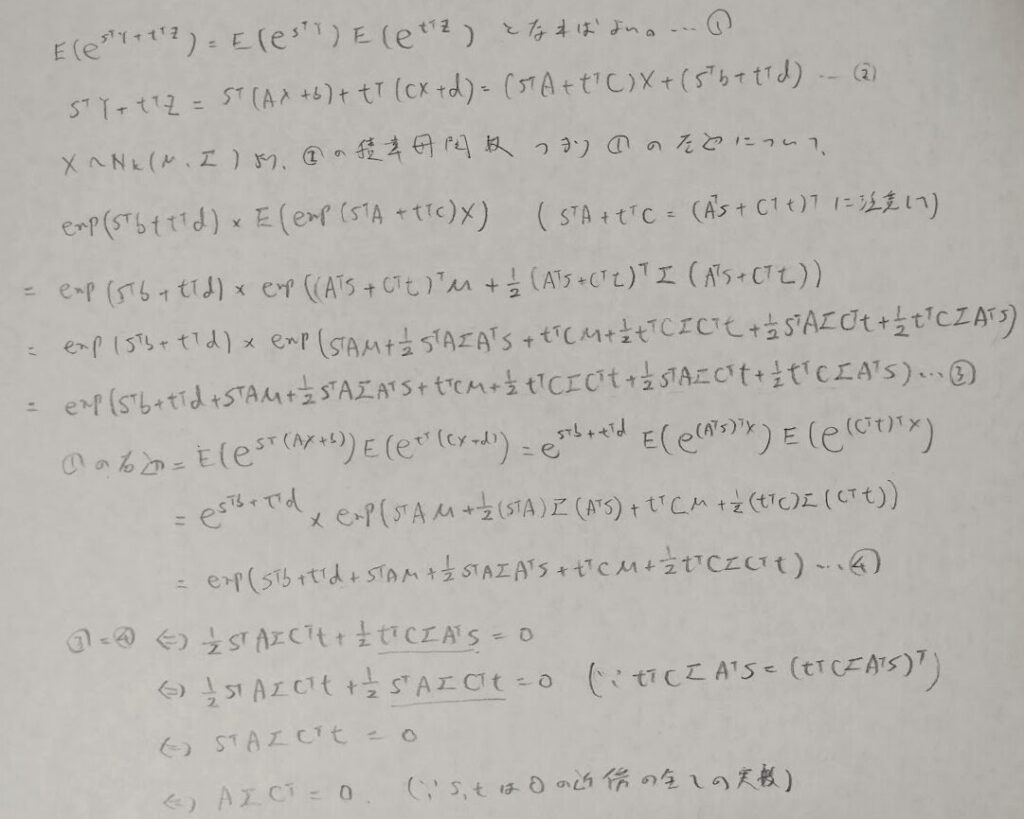 E(e^{sᵀY+tᵀZ}) = E(e^{sᵀY}) E(e^{tᵀZ}) となればよい。…①
sᵀY+tᵀZ = sᵀ(AX+b)+tᵀ(CX+d) = (sᵀA+tᵀC)X+(sᵀb+tᵀd) … ②
X~N_k(μ,Σ)より、②の積率母関数 つまり ①の左辺について、
exp(sᵀb+tᵀd) × E(exp(sᵀA+tᵀC)X) (sᵀA+tᵀC = (Aᵀs+Cᵀt)ᵀに注意して)
= exp(sᵀb+tᵀd) × exp((Aᵀs+Cᵀt)ᵀμ+½(Aᵀs+Cᵀt)ᵀΣ(Aᵀs+Cᵀt))
= exp(sᵀb+tᵀd) × exp(sᵀAμ+½sᵀAΣAᵀs+tᵀCμ+½tᵀCΣCᵀt+½sᵀAΣCᵀt+½tᵀCΣAᵀs)
= exp(sᵀb+tᵀd+sᵀAμ+½sᵀAΣAᵀs+tᵀCμ+½tᵀCΣCᵀt+½sᵀAΣCᵀt+½tᵀCΣAᵀs)…③
①の右辺 = E(e^{sᵀ(AX+b)})E(e^{tᵀ(CX+d)}) = e^{sᵀb+tᵀd} E(e^{(Aᵀs)ᵀX})E(e^{(Cᵀt)ᵀX})
= e^{sᵀb+tᵀd} × exp(sᵀAμ+½(sᵀA)Σ(Aᵀs)+tᵀCμ+½(tᵀC)Σ(Cᵀt))
= exp(sᵀb+tᵀd+sᵀAμ+½sᵀAΣAᵀs+tᵀCμ+½tᵀCΣCᵀt)…④
③=④ ⇔ ½sᵀAΣCᵀt+½tᵀCΣAᵀs = 0
⇔ ½sᵀAΣCᵀt+½sᵀAΣCᵀt = 0 (∵ tᵀCΣAᵀs = (tᵀCΣAᵀs)ᵀ)
⇔ sᵀAΣCᵀt = 0
⇔ AΣCᵀ = 0. (∵ s,tは0の近傍の全ての実数)